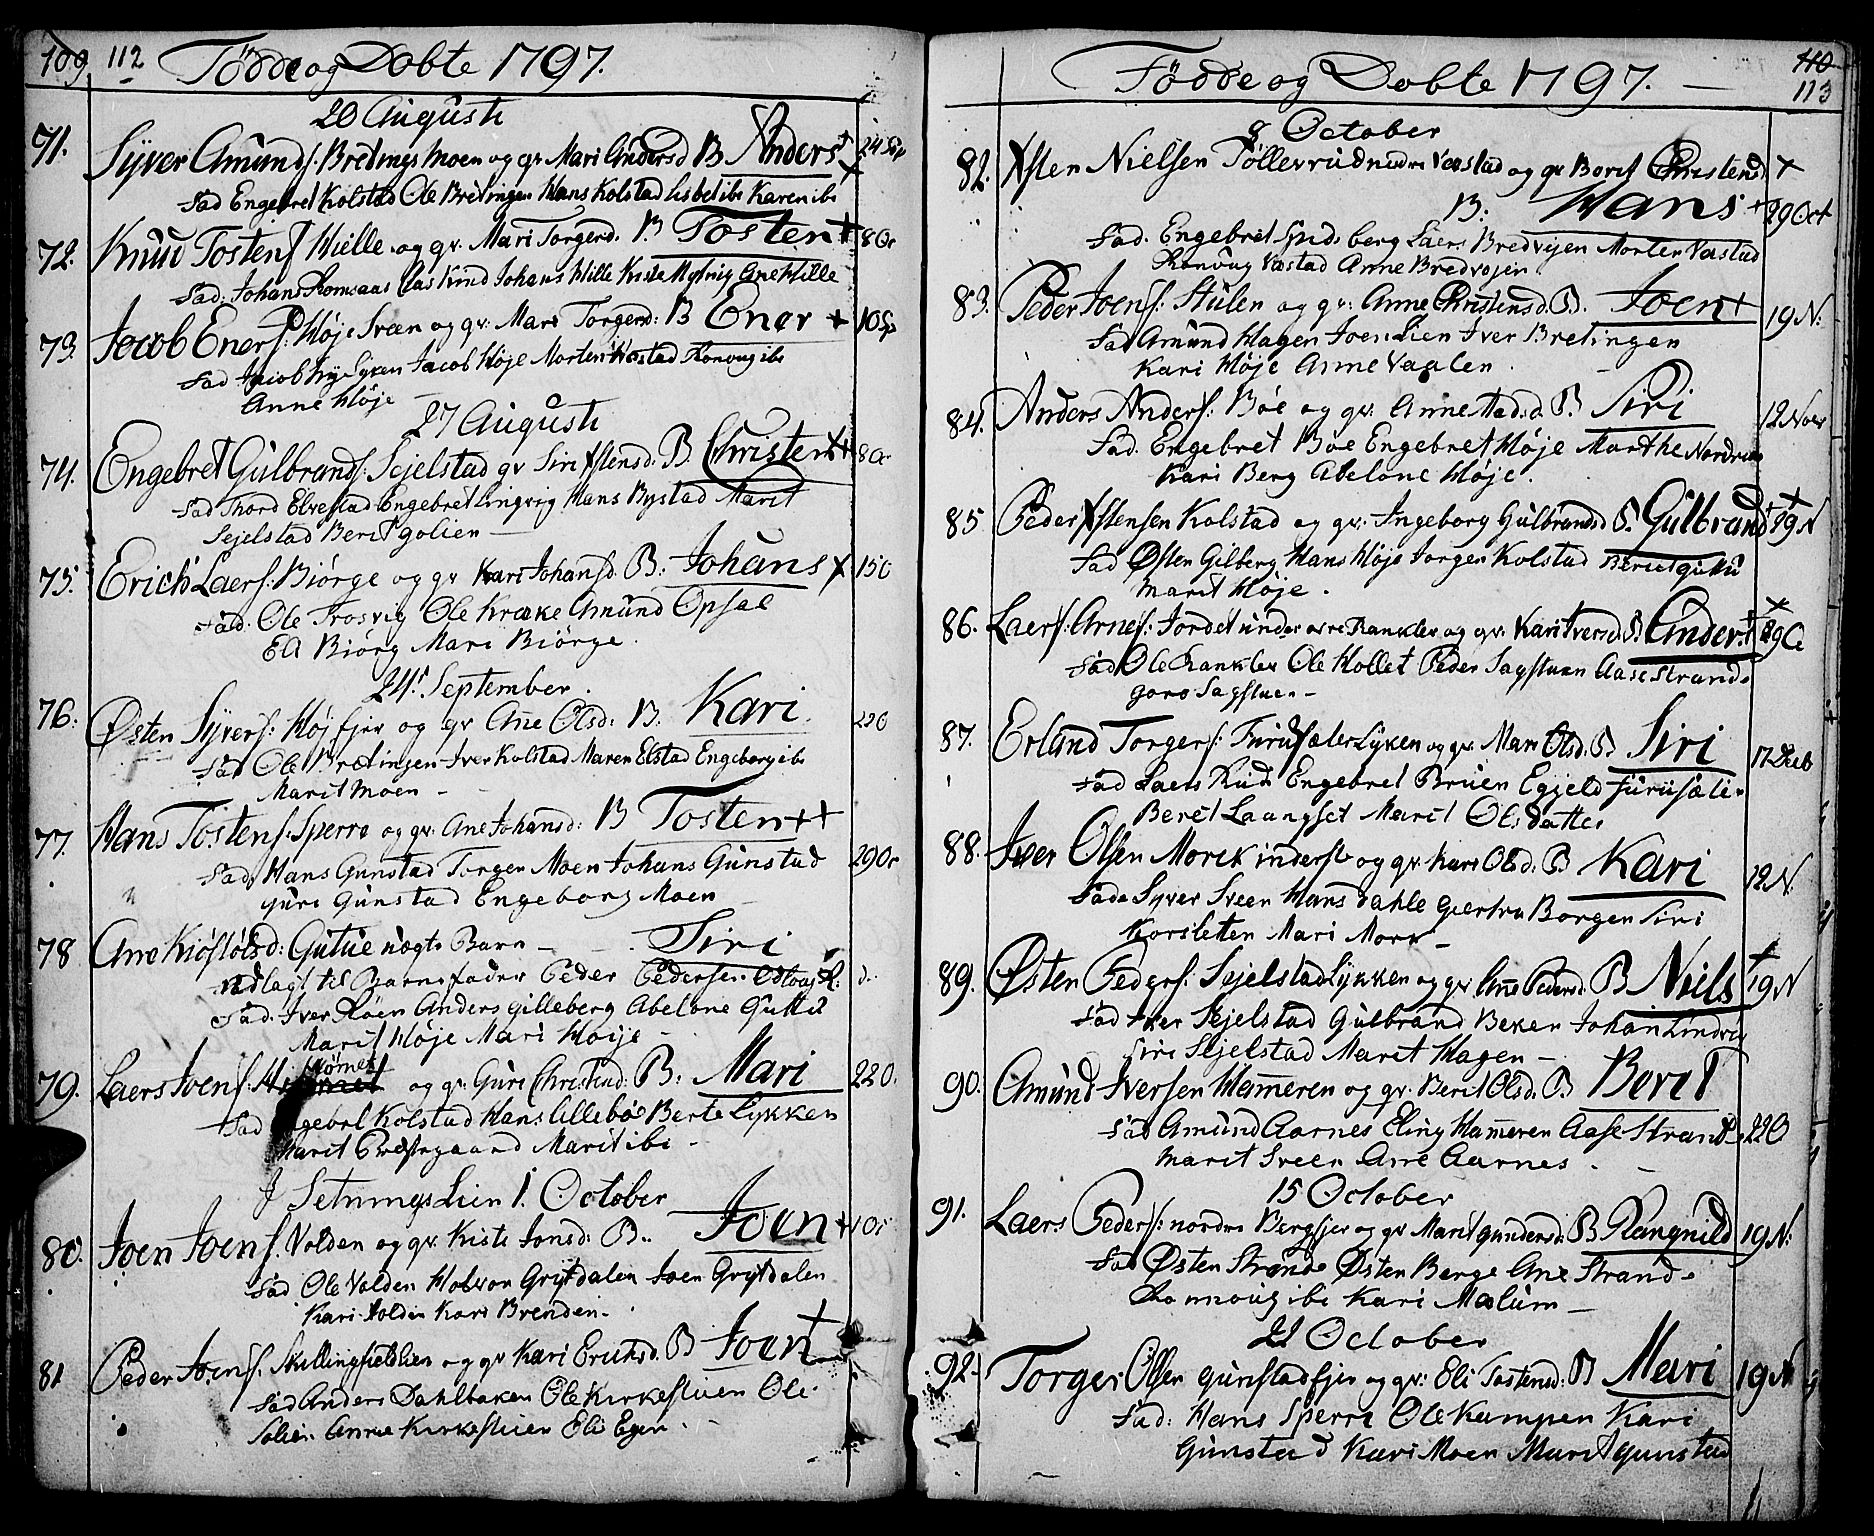 109 112 Födde og Døbte 1797.
20 Augusti
71. Syver Amunds. Bretings Moen og qv. Mari Andersd B Anders + 24 Sep
Fad Engebret Kolstad Ole Bretingen Hans Kolstad Lisbet ibi Karen ibi
72. Knud Tostens Hielle og qv. Mari Torgersd. B Tosten + 8 Oc
Fad: Johans Romsaas Claskind Johans Hille Kiste Ane Hille
73. Jacob Eners: Høje Sveen og qv: Mari Torgersd: B Ener + 10 Sep
Fad Jacob Høje Morten Vastad Ronnoug ibi
Anne Høje
27 Augusti
74. Engebret Gulbrands. Sejelstad qv Siri Østensd. B. Christen ++ 8 Oc
Fad Thord Elvestad Engebret Lingvig Hans Bystad Marit
Sejelstad Berit golien
75. Erich Laers: Biørge og qv Kari Johansd. B. Johans + 15 O
Fad. Ole Trosvig Ole Kræke Amund Opsal
Eli Biørg Mari Biørge.
24. September.
76. Østen Syvers: Højfjer og qv Ane Olsd: B. Kari 22 O
Fad Ole Bretingen Iver Kolstad Maren Elstad Engeborg ibi
Marit Moen
77. Hans Tostens: Sperre og qv. Ane Johansd: B Tosten ++ 29 Oc
Fad. Hans Gunstad Torgen Moen Johans Gunstad
guri Gunstad Engeborg Moen
78 Ane Kiøstolsd: Gutue uægte Barn Siri
udlagt til Barnefader Peder Pedersen d.
Fad. Iver Røen Anders gilleberg Abelone Guttu
Marit Høje Mari Høije
79. Laers Joens: og qv: Guri Christend: B. Mari 22 O.
Fad Kolstad Hans Lillebøe Berte Lykken
Marit Præstegaard Marit ibi
I Setnings Lien 1. October
80. Joen Joens. Volden og qv. Kisti Jonsd: B. Joen + 1 Oc
Fad Ole Volden Halvor Grytdalen Joen Grytdalen
Kari Volden Kari Brenden
81 Peder Joens. Skillingfieldlien og qv Kari Eriksd. B Joen +
Fad Anders Dahlbaken Ole Kirkestuen Ole
Solien Anne Kirkestuen Eli Egen
Födde og Døbte 1797. 110 113
8 October
82. Østen Nielsen Tøllerrud nedre Vastad og qv Borit Christensd +
B. Hans + 29 Oct
Fad. Engebret Laers Bredvejen Morten Vastad
Ronnoug Vastad Anne Bredvejen
83. Peder Joens. Stulen og qv. Anne Christensd. B. Joen + 19 N:
Fad Amund Hagen Joen Lien Iver Bretingen
Kari Høje Anne Vaalen
84. Anders Anders: Böe og qv. Anne Madsd. B. Siri 12 Nov
Fad. Engebret Boe Engebret Høje Marthe
Kari Berg Abelone Høje.
85 Peder Østensen Kolstad og qv. Ingeborg Gulbransd B. Gulbrand + 19 N
Fad Østen Gilberg Hans Høje Jorgen Kolstad Berit guttu
Marit Høje.
86. Laers. Arnes: Jordet under øvre Rankler og qv. Kari Iversd B. Anders + 29 O
Fad Ole Rankler Ole Hollet Peder Sagstuen Aase Strande
goro Sagstuen
87. Erland Torgers: Furusæter Lyken og qv. Mari Olsd. B Siri 17 Decb
Fad Laers Rud Engebret Bruen Egjeld furusæte
Beret Laangset Marit Olsdatter
88. Iver Olsen Morck inderst og qv. Kari Olsd. B Kari 12 N.
Fad Syver Sveen Hans Dahle giertru Borgen Siri
Korsletten Mari Mork
89. Østen Peders: Sejelstad Lykken og qv. Ane Pedersd. B Niels + 19 N
Fad Iver Sejelstad Gulbrand Beken Johan Lindvig
Siri Sejelstad Marit Hagen
90. Amund Iversen Hammeren og qv. Berit Olsd. B Berit 22 O
Fad Amund Aarnes Eling Hammeren Aase Strande
Marit Sveen Ane Aarnes.
15 October
91. Laers Peders: nordre Bergsjer og qv. Marit gundersd. B Rangnild 19 N:
Fad Østen Strande Østen Berge Ane Strande
Ronnoug ibi Kari Mælum
22 October
92. Torger Olsen Gunstadfjer og qv. Eli Tostensd: B Mari 19 N
Fad: Hans Sperre Ole Kampen Kari
Gunstad Kari Moen Marit gunstad